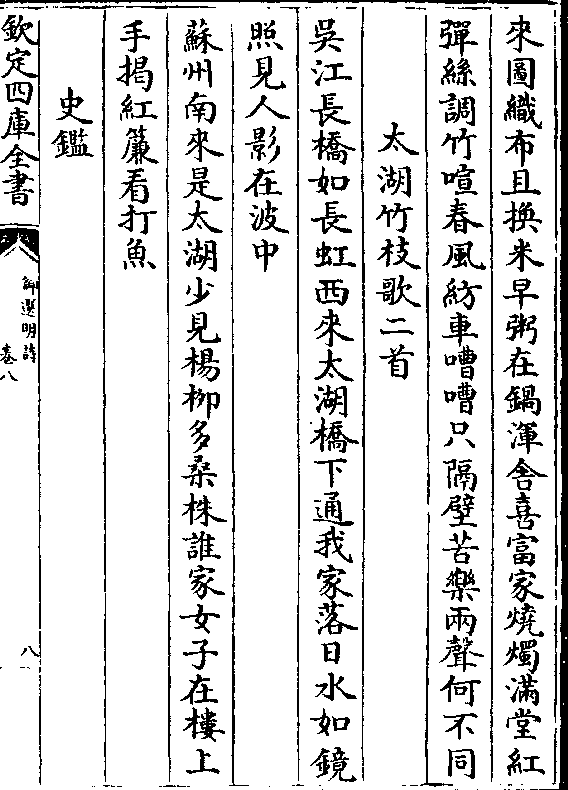 來圖織布且換米早粥在鍋渾舎喜富家燒燭滿堂紅
彈絲調竹喧春風紡車嘈嘈只隔壁苦樂兩聲何不同
太湖竹枝歌二首
吳江長橋如長虹西來太湖橋下通我家落日水如鏡
照見人影在波中
蘇州南來是太湖少見楊柳多桑株誰家女子在樓上
手揭紅簾看打魚
史鑑
欽定四庫全書
御選明詩
卷八
八